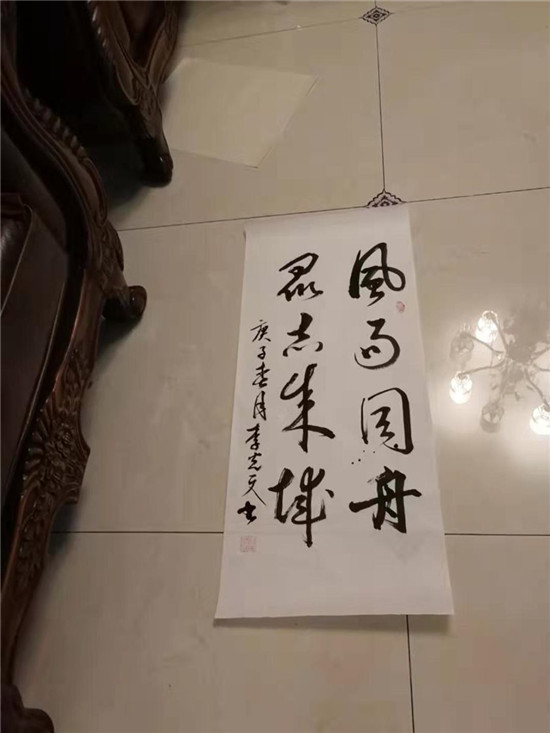 風雨同舟
眾志成城
庚子春月李志文书